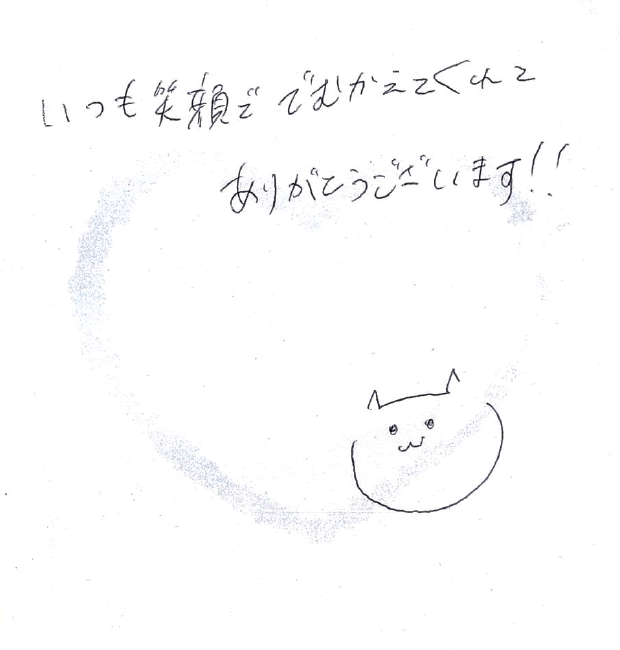 いつも笑顔で でむかえてくれて
ありがとうございます!!